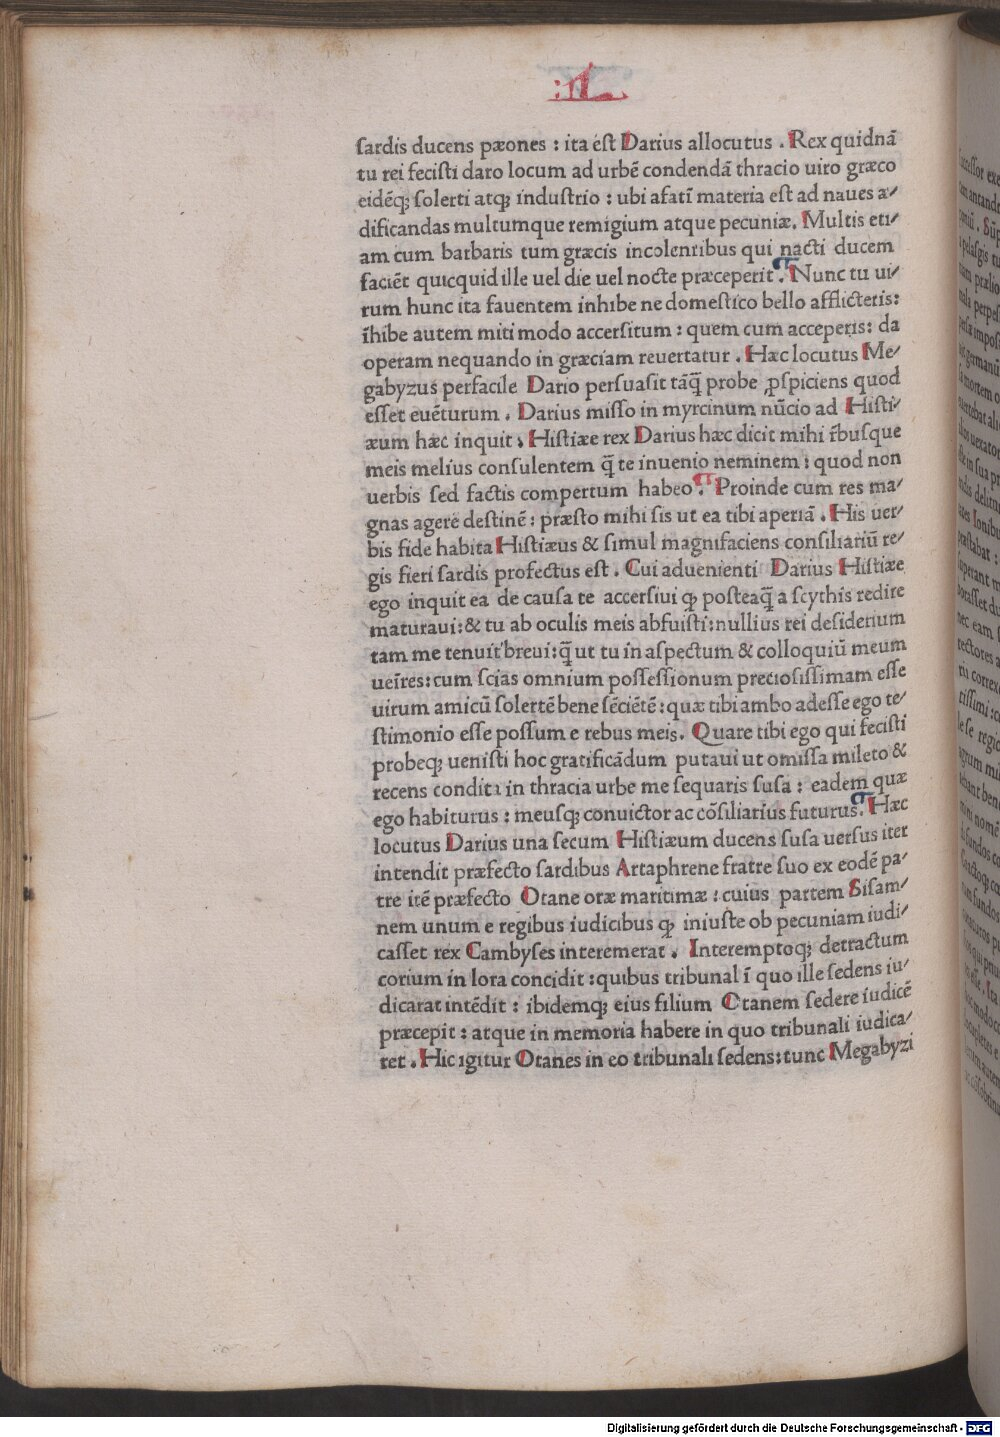 :L
sardis ducens pæones : ita est Darius allocutus . Rex quidnã
tu rei fecisti daro locum ad urbē condendã thracio uiro græco
eidēqꝫ solerti atqꝫ industrio : ubi afatī materia est ad naues æ⸗
dificandas multumque remigium atque pecuniæ. Multis eti⸗
am cum barbaris tum græcis incolentibus qui nacti ducem
faciēt quicquid ille uel die uel nocte præceperit . ¶ Nunc tu ui⸗
rum hunc ita fauentem inhibe ne domestico bello afflicteris:
īhibe autem miti modo accersitum : quem cum acceperis: da
operam nequando in græciam reuertatur . Hæc locutus Me⸗
gabyzus perfacile Dario persuasit tãq̄ probe ꝓspiciens quod
esset euēturum . Darius misso in myrcinum nūcio ad Histi⸗
æum hæc inquit . Histiæe rex Darius hæc dicit mihi r̄busque
meis melius consulentem q̄ te inuenio neminem : quod non
uerbis sed factis compertum habeo . ¶ Proinde cum res ma⸗
gnas agere destinē : præsto mihi sis ut ea tibi aperiã . His uer⸗
bis fide habita Histiæus & simul magnifaciens consiliariū re⸗
gis fieri sardis profectus est . Cui aduenienti Darius Histiæe
ego inquit ea de causa te accersiui ꝙ posteaq̄ a scythis redire
maturaui:& tu ab oculis meis abfuisti:nullius rei desiderium
tam me tenuit breui:q̄ ut tu in aspectum & colloquiū meum
ueīres:cum scias omnium possessionum preciosissimam esse
uirum amicū solertē bene sēciētē:quæ tibi ambo adesse ego te⸗
stimonio esse possum e rebus meis. Quare tibi ego qui fecisti
probeqꝫ uenisti hoc gratificãdum putaui ut omissa mileto &
recens condita in thracia urbe me sequaris susa : eadem quæ
ego habiturus : meusqꝫ conuictor ac cōsiliarius futurus. ¶ Hæc
locutus Darius una secum Histiæum ducens susa uersus iter
intendit præfecto sardibus Artaphrene fratre suo ex eodē pa⸗
tre itē præfecto Otane oræ maritimæ : cuius partem Sisam⸗
nem unum e regibus iudicibus ꝙ iniuste ob pecuniam iudi⸗
casset rex Cambyses interemerat . Interemptoqꝫ detractum
corium in lora concidit :quibus tribunal ī quo ille sedens iu⸗
dicarat intēdit : ibidemqꝫ eius filium Otanem sedere iudicē
præcepit : atque in memoria habere in quo tribunali iudica⸗
ret . Hic igitur Otanes in eo tribunali sedens:tunc Megabyzi
Digitalisierung gefördert durch die Deutsche Forschungsgemeinschaft - DFG